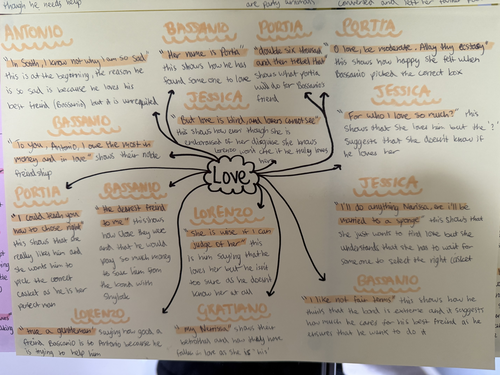 though he needs help
are party animals
ANTONIO
"In Sooth, I know not why I am so sad"
this is at the beginning, the reason he
is so sad is because he loves his
best freind (Bassanio) but it is unrequited
BASSANIO
"Her name is Portia"
this shows how he has
found some one to love
PORTIA
"double six thousand
and then treble that"
shows what portia
will do for Bassanio's
freind
PORTIA
"O love, be moderate. Allay thy ecstasy"
this shows how happy she felt when
Bassanio picked the correct box
JESSICA
"But love is blind, and lovers cannot see"
this shows how even though she is
embarrassed of her disguise she knows
lorenzo wont care if he truley loves
her
JESSICA
"For who I love so much?" this
shows that she loves him but the '?'
suggests that she doesnt know if
he loves her
BASSANIO
"To you, Antonio, I owe the most in
money and in love" shows their
freindship
Love
PORTIA
"I could teach you
how to chose right"
this shows that she
really likes him and
she wants him to
pick the correct
casket as he is her
perfect man
BASSANIO
"the dearest freind
to me" this shows
how close they were
and that he would
pay so much money
to save him from
the bond with
Shylock
LORENZO
"She is wise if I can
judge of her" this
is him saying that he
loves her but he isnt
too sure as he doesnt
know her at all
JESSICA
"I'll do anything Nerissa, ere i'll be
married to a sponge" this shows that
She Just wants to find love but she
understands that she has to wait for
someone to select the right casket
BASSANIO
"I like not fair terms" this shows how he
thinks that the bond is extreme and it suggests
how much he cares for his best freind as he
ensures that he want to do it
LORENZO
"true a gentleman" saying how good a
freind Bassanio is to Antonio because he
is trying to help him
GRATIANO
"my Nerrissa" shows their
betrothal and how they have
fallen in love as she is 'his'